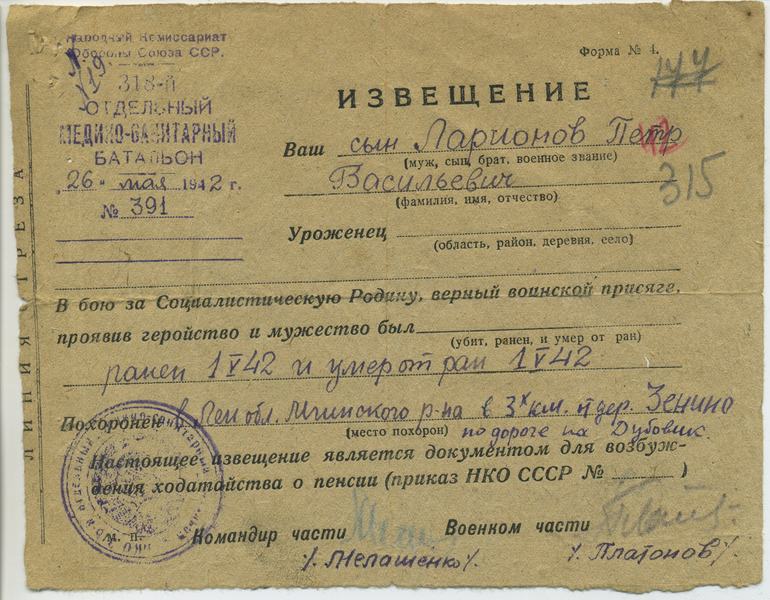 Народный Комиссариат
Обороны Союза ССР.
318-й
ОТДЕЛЬНЫЙ
МЕДИКО-САНИТАРНЫЙ
БАТАЛЬОН
"26" мая 1942 г.
№ 391
ЛИНИЯ ОТРЕЗА
Форма № 4.
177
42
315
ИЗВЕЩЕНИЕ
Ваш сын Ларионов Петр
(муж, сын, брат, военное звание)
Васильевич
(фамилия, имя, отчество)
Уроженец
(область, район, деревня, село)
В бою за Социалистическую Родину, верный воинской присяге,
проявив геройство и мужество был
(убит, ранен, и умер от ран)
ранен 1 V 42 и умер от ран 1 V 42
Похоронен в Лен обл. Мгинского р-на в 3х км. дер. Зенино
(место похорон) по дороге на Дубовик.
Настоящее извещение является документом для возбуж-
дения ходатайства о пенсии (приказ НКО СССР № )
М. п.
Командир части Военком части
/. Мелашенко /. /. Платонов /.